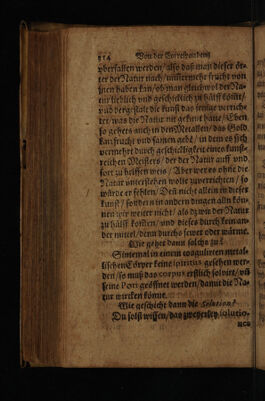 214 Von der Correspondentz
vberfallen werden / also daß man dieser ör-
ter der Natur nach / nimmermehr frucht von
jnen haben kan / ob man gleichwol der Na-
tur lieblich vnd geschicklich zu hülff kömt /
vnd dergestalt die kunst das jenige verrich-
tet / was die Natur nit gekönt hatte / Eben
so gehets auch in den Metallen / das Gold
kan frucht vnd samen gebē / in dem es sich
vermehrt durch geschickligkeit eines kunst-
reichen Meisters / der der Natur auff vnd
fort zu helffen weis / Aber wer es ohne die
Natur vnterstehen wolte zuverrichten / so
würde er fehlen / Deñ nicht allein in dieser
kunst / sondern in andern dingen allñ kön-
nen wir weiter nicht / als dz wir der Natur
zu hülff kommen / vnd dieses durch kein an-
der mittel / denn durch fewer oder wärme.
Wie gehet dann solche zu?
Sintemal in einem coagulierten metal-
lischen Cörper keine spiritus gesehen wer-
den / so muß das corpus erstlich solvirt / vñ
seine Pori geöffnet werden / damit die Na-
tur wircken könne.
Wie geschicht dann die Solution?
Du solst wissen / das zweyerley solutio-
nes